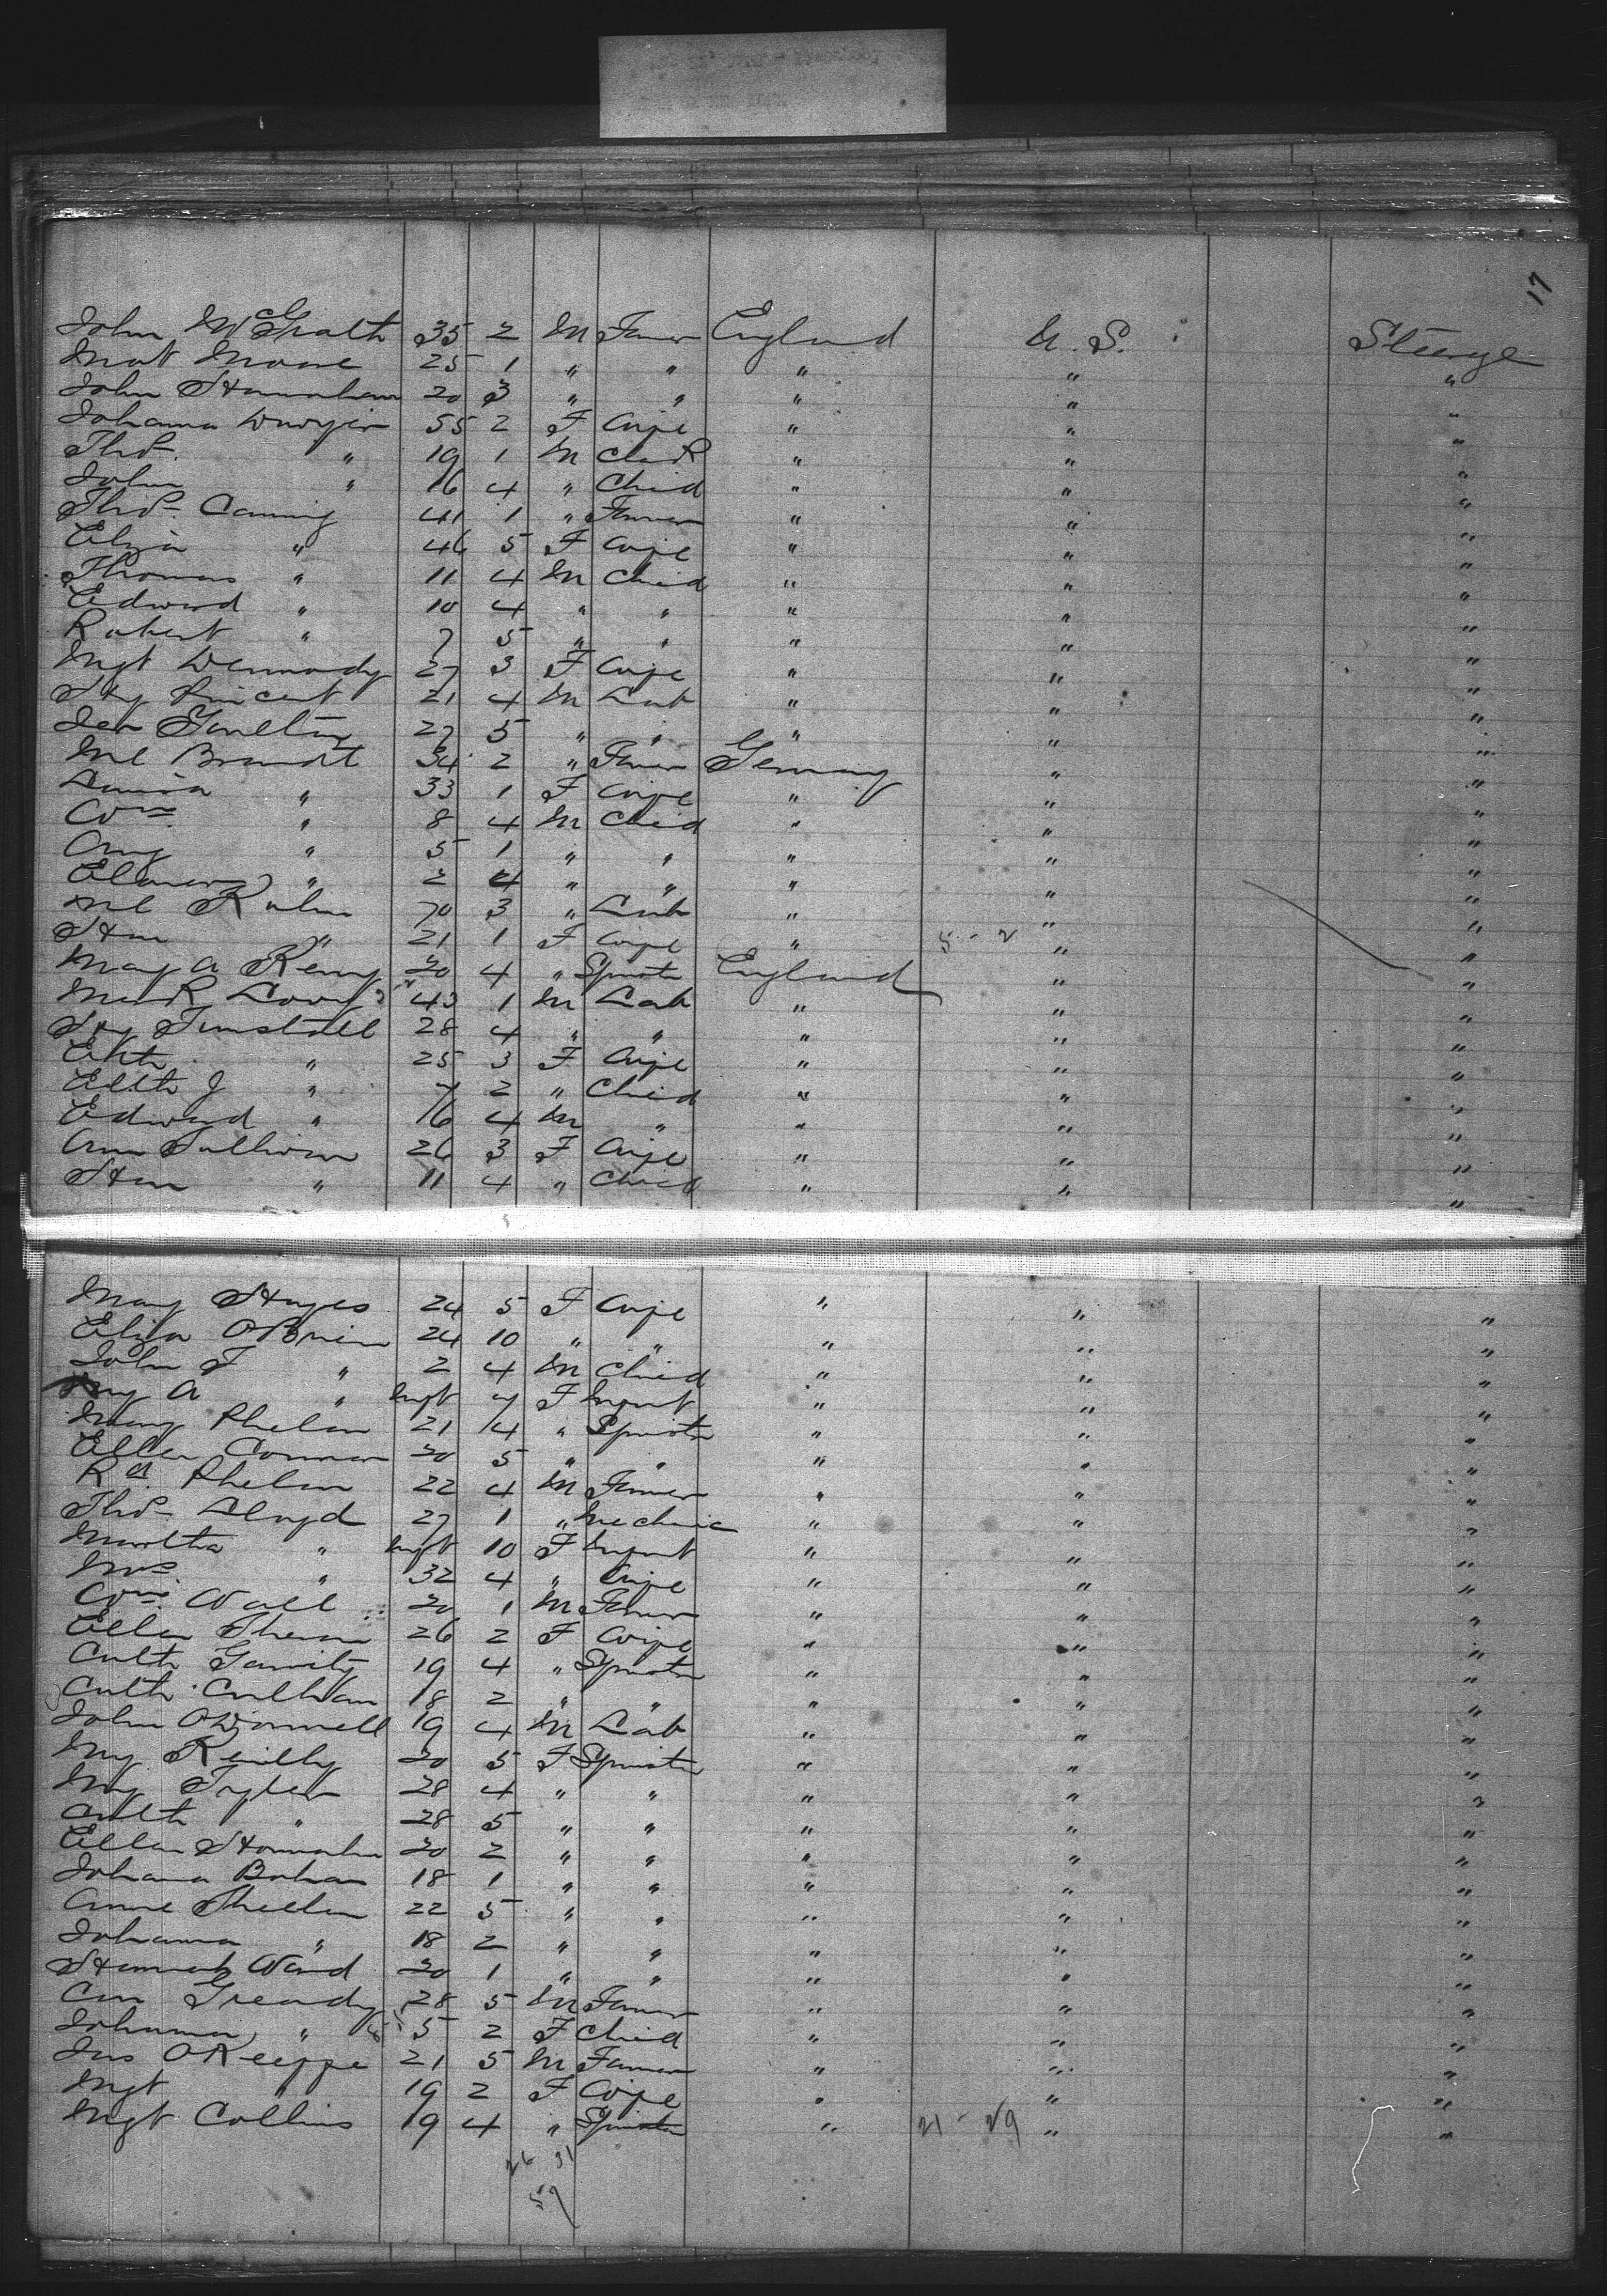 17
John McGrath 35 2 M Farmer England U. S. Steerage
Mat Moore 25 1 " " " " "
John Hannahan 20 3 " " " " "
Johanna Dwyer 55 2 F Wife " " "
Thos. " 19 1 M Clerk " " "
John " 16 4 " Child " " "
Thos. Canning 41 1 " Farmer " " "
Eliza " 46 5 F Wife " " "
Thomas " 11 4 M Child " " "
Edward " 10 4 " " " " "
Robert " 7 5 " " " " "
Mgt Dermody 27 3 F Wife " " "
Hy Vincent 21 4 M Lab " " "
27 5 " " " " "
Ml Brandt 34 2 " Farmer Germany " "
Louisa " 33 1 F Wife " " "
Wm " 8 4 M Child " " "
Aug " 5 1 " " " " "
" 2 4 " " " " "
Ml Kuhn 70 3 " Lab " " "
Han " 21 1 F Wife " 5 - 2 " "
Mary A Kenny 20 4 " Spinster England " "
Mark 43 1 M Lab " " "
Hy Tunstall 28 4 " " " " "
Elith " 25 3 F Wife " " "
Elith J " 7 2 " Child " " "
Edward " 16 4 M " " " "
Ann Sullivan 26 3 F Wife " " "
Han " 11 4 " Child " " "
Mary Hayes 24 5 F Wife " " "
Eliza OBrien 24 10 " " " " "
John F " 2 4 M Child " " "
My A " Inft F Infant " " "
Mary Phelan 21 4 " Spinster " " "
Ellen Connor 20 5 " " " " "
Rd Phelan 22 4 M Farmer " " "
Thos. Lloyd 27 1 " Mechanic " " "
Martha " Inft 10 F Infant " " "
Mrs " 32 4 " Wife " " "
Wm Wall 20 1 M Farmer " " "
Ellen 26 2 F Wife " " "
Cath Garrity 19 4 " Spinster " " "
Cath Culhan 18 2 " " " " "
John ODonnell 19 4 M Lab " " "
My Reilly 20 5 F Spinster " " "
My Tyler 28 4 " " " " "
Cath " 28 5 " " " " "
Ellen Hannahan 20 2 " " " " "
Johana Bohan 18 1 " " " " "
Anne 22 5 " " " " "
Johanna " 18 2 " " " " "
Hannah Ward 20 1 " " " " "
28 5 M Farmer " " "
Johanna " 5 2 F Child " " "
Jas OKeeffe 21 5 M Farmer " " "
Mgt " 19 2 F Wife " " "
Mgt Collins 19 4 " Spinster " 21 - 29 " "
59